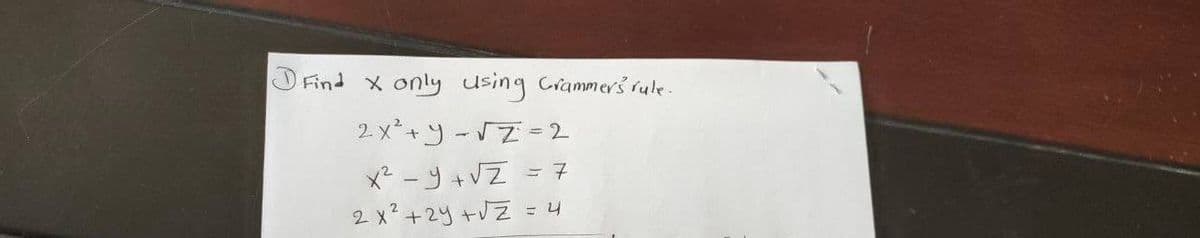 ① Find x only using Crammers' rule.
2x² + y - √z = 2
x² - y + √z = 7
2x² + 2y + √z = 4